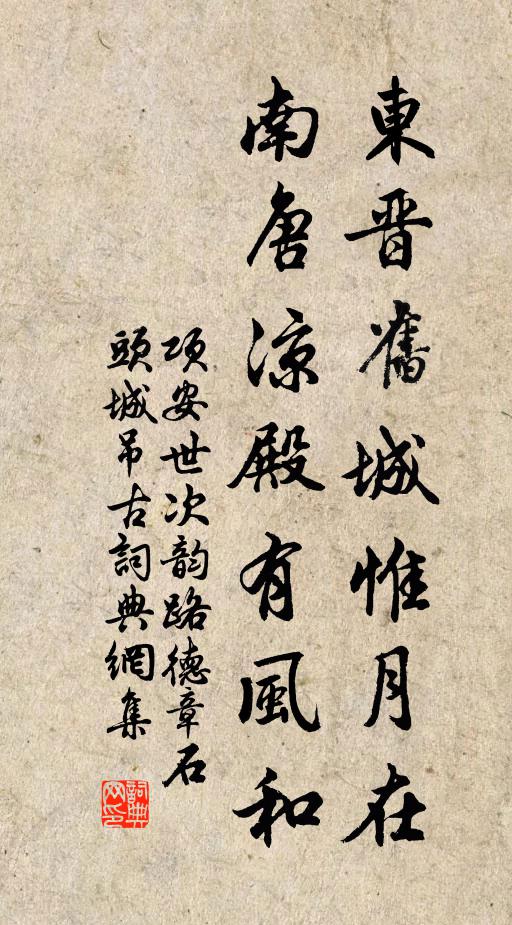 東晋舊城惟月在
南唐凉殿有風和
项安世次韵路德章石
頭城吊古詞典網集
詞典网印